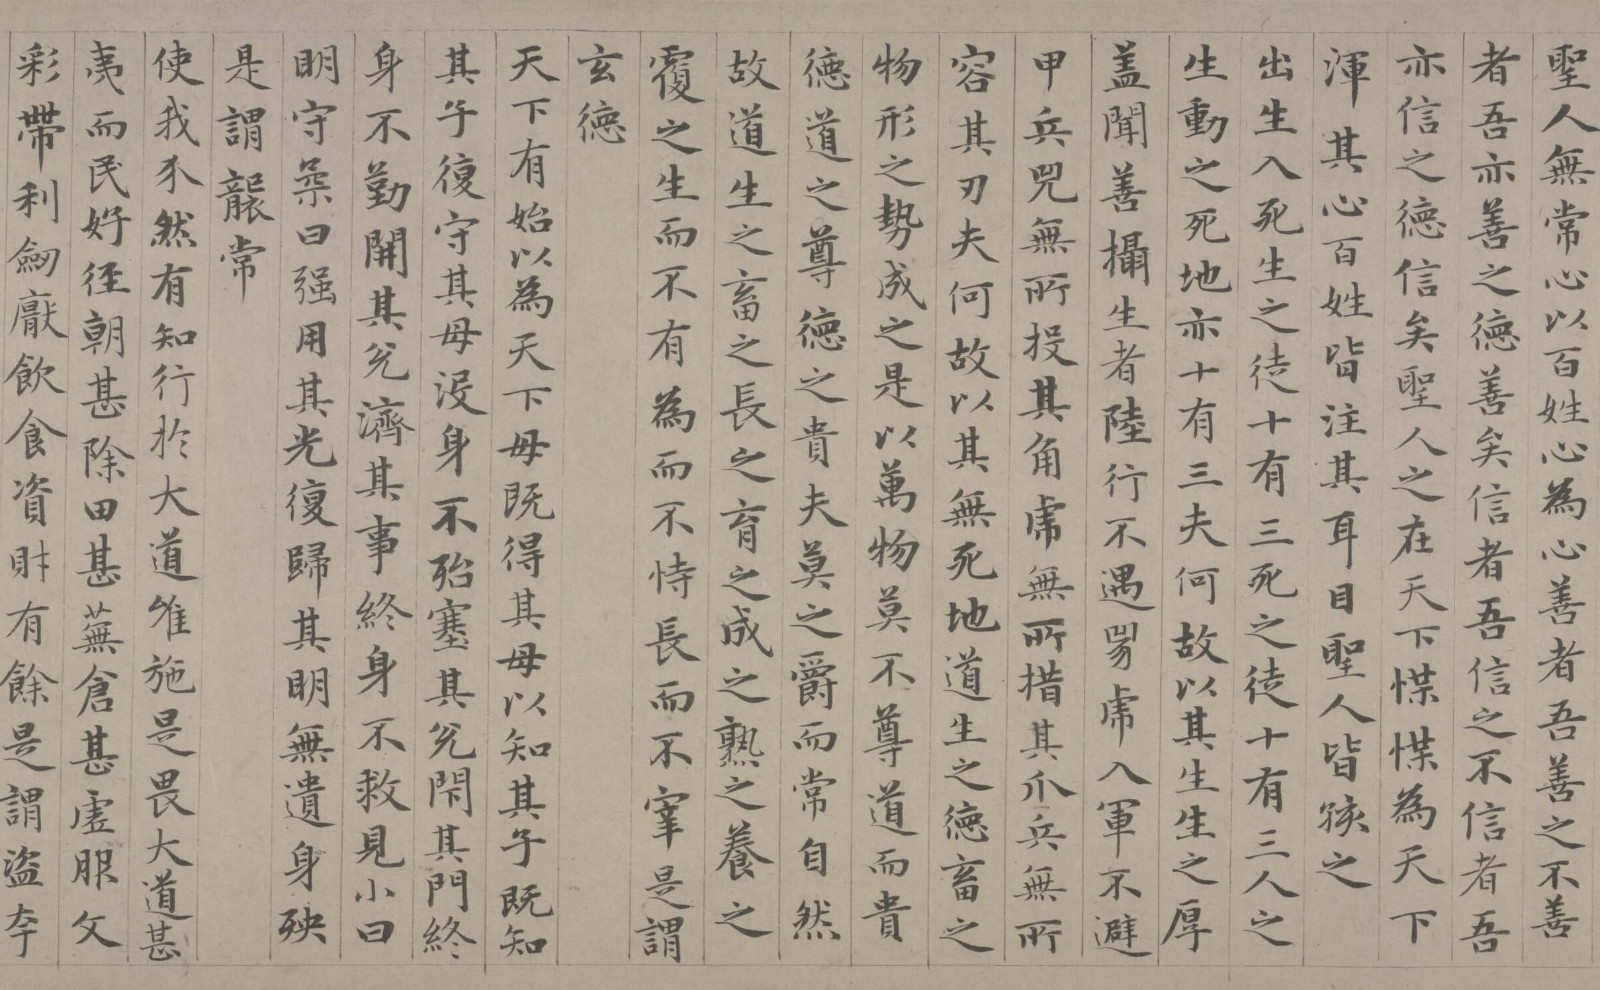 聖人無常心以百姓心為心善者吾善之不善
者吾亦善之德善矣信者吾信之不信者吾
亦信之德信矣聖人之在天下惵惵為天下
渾其心百姓皆注其耳目聖人皆孩之
出生入死生之徒十有三死之徒十有三人之
生動之死地亦十有三夫何故以其生生之厚
蓋聞善攝生者陸行不遇兕虎入軍不避
甲兵兕無所投其角虎無所措其爪兵無所
容其刃夫何故以其無死地道生之德畜之
物形之勢成之是以萬物莫不尊道而貴
德道之尊德之貴夫莫之爵而常自然
故道生之畜之長之育之成之熟之養之
覆之生而不有為而不恃長而不宰是謂
玄德
天下有始以為天下母既得其母以知其子既知
其子復守其母没身不殆塞其兌閇其門終
身不勤開其兌濟其事終身不救見小曰
明守柔曰强用其光復歸其明無遺身殃
是謂襲常
使我介然有知行於大道唯施是畏大道甚
夷而民好徑朝甚除田甚蕪倉甚虛服文
彩帶利劒厭飲食資財有餘是謂盜夸